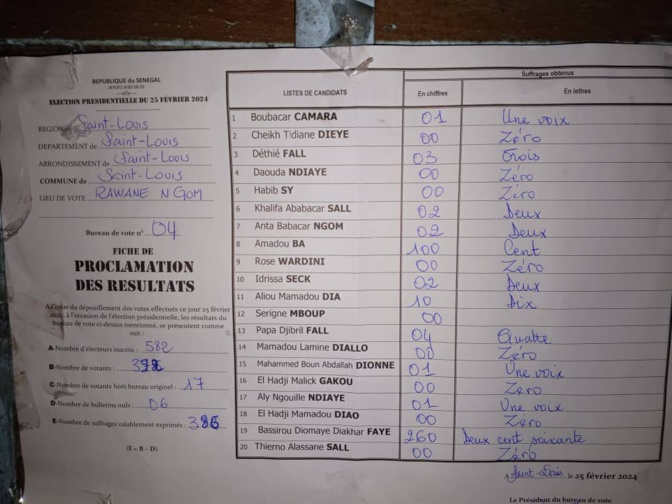 REPUBLIQUE du SENEGAL
ELECTION PRESIDENTIELLE DU 25 FÉVRIER 2024
REGION Saint-Louis
DEPARTEMENT de Saint-Louis
ARRONDISSEMENT de Saint-Louis
COMMUNE de Saint-Louis
LIEU DE VOTE RAWANE NGOM
Bureau de vote n° 04
FICHE DE
PROCLAMATION
DES RESULTATS
du dépouillement des votes effectués ce jour 25 février
à l'occasion de l'élection présidentielle, les résultats du
bureau de vote ci-dessus mentionné, se présentent comme
suit :
A-Nombre d'électeurs inscrits : 582
B-Nombre de votants :
C-Nombre de votants hors bureau originel : 17
D-Nombre de bulletins nuls : 06
E-Nombre de suffrages valablement exprimés : 386
(E = B – D)
LISTES DE CANDIDATS
Suffrages obtenus
En chiffres En lettres
1 Boubacar CAMARA 01 Une voix
2 Cheikh Tidiane DIEYE 00 Zéro
3 Déthié FALL 03 Trois
4 Daouda NDIAYE 00 Zéro
5 Habib SY 00 Zéro
6 Khalifa Ababacar SALL 02 Deux
7 Anta Babacar NGOM 02 Deux
8 Amadou BA 100 Cent
9 Rose WARDINI 00 Zéro
10 Idrissa SECK 02 Deux
11 Aliou Mamadou DIA 10 Dix
12 Serigne MBOUP 00
13 Papa Djibril FALL 04 Quatre
14 Mamadou Lamine DIALLO 00 Zéro
15 Mahammed Boun Abdallah DIONNE 01 Une voix
16 El Hadji Malick GAKOU 00 Zero
17 Aly Ngouille NDIAYE 01 Une voix
18 El Hadji Mamadou DIAO 00 Zéro
19 Bassirou Diomaye Diakhar FAYE 260 Deux cent soixante
20 Thierno Alassane SALL 00 Zéro
A Saint-Louis, le 25 février 2024
Le Président du bureau de vote